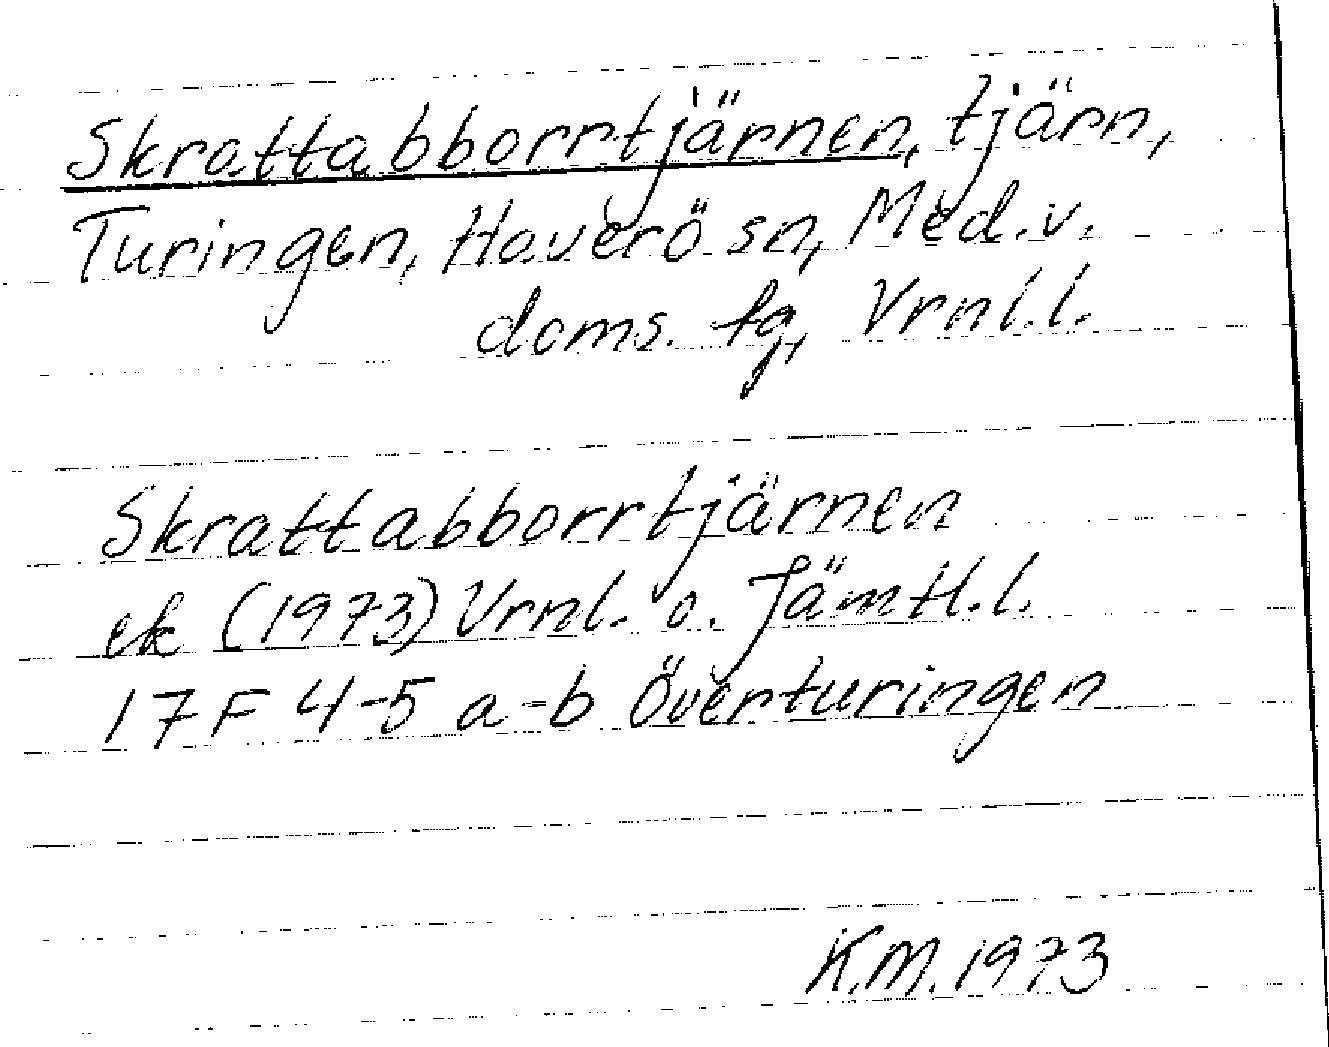 Skrattabborrtjärnen, tjärn,
Turingen, Haverö sn, Med.v.
doms. tg, Vrnl.l.
Skrattabborrtjärnen
ek (1973) Vrnl. o. Jämtl.l.
17 F 4-5 a-b Överturingen
K.M. 1973